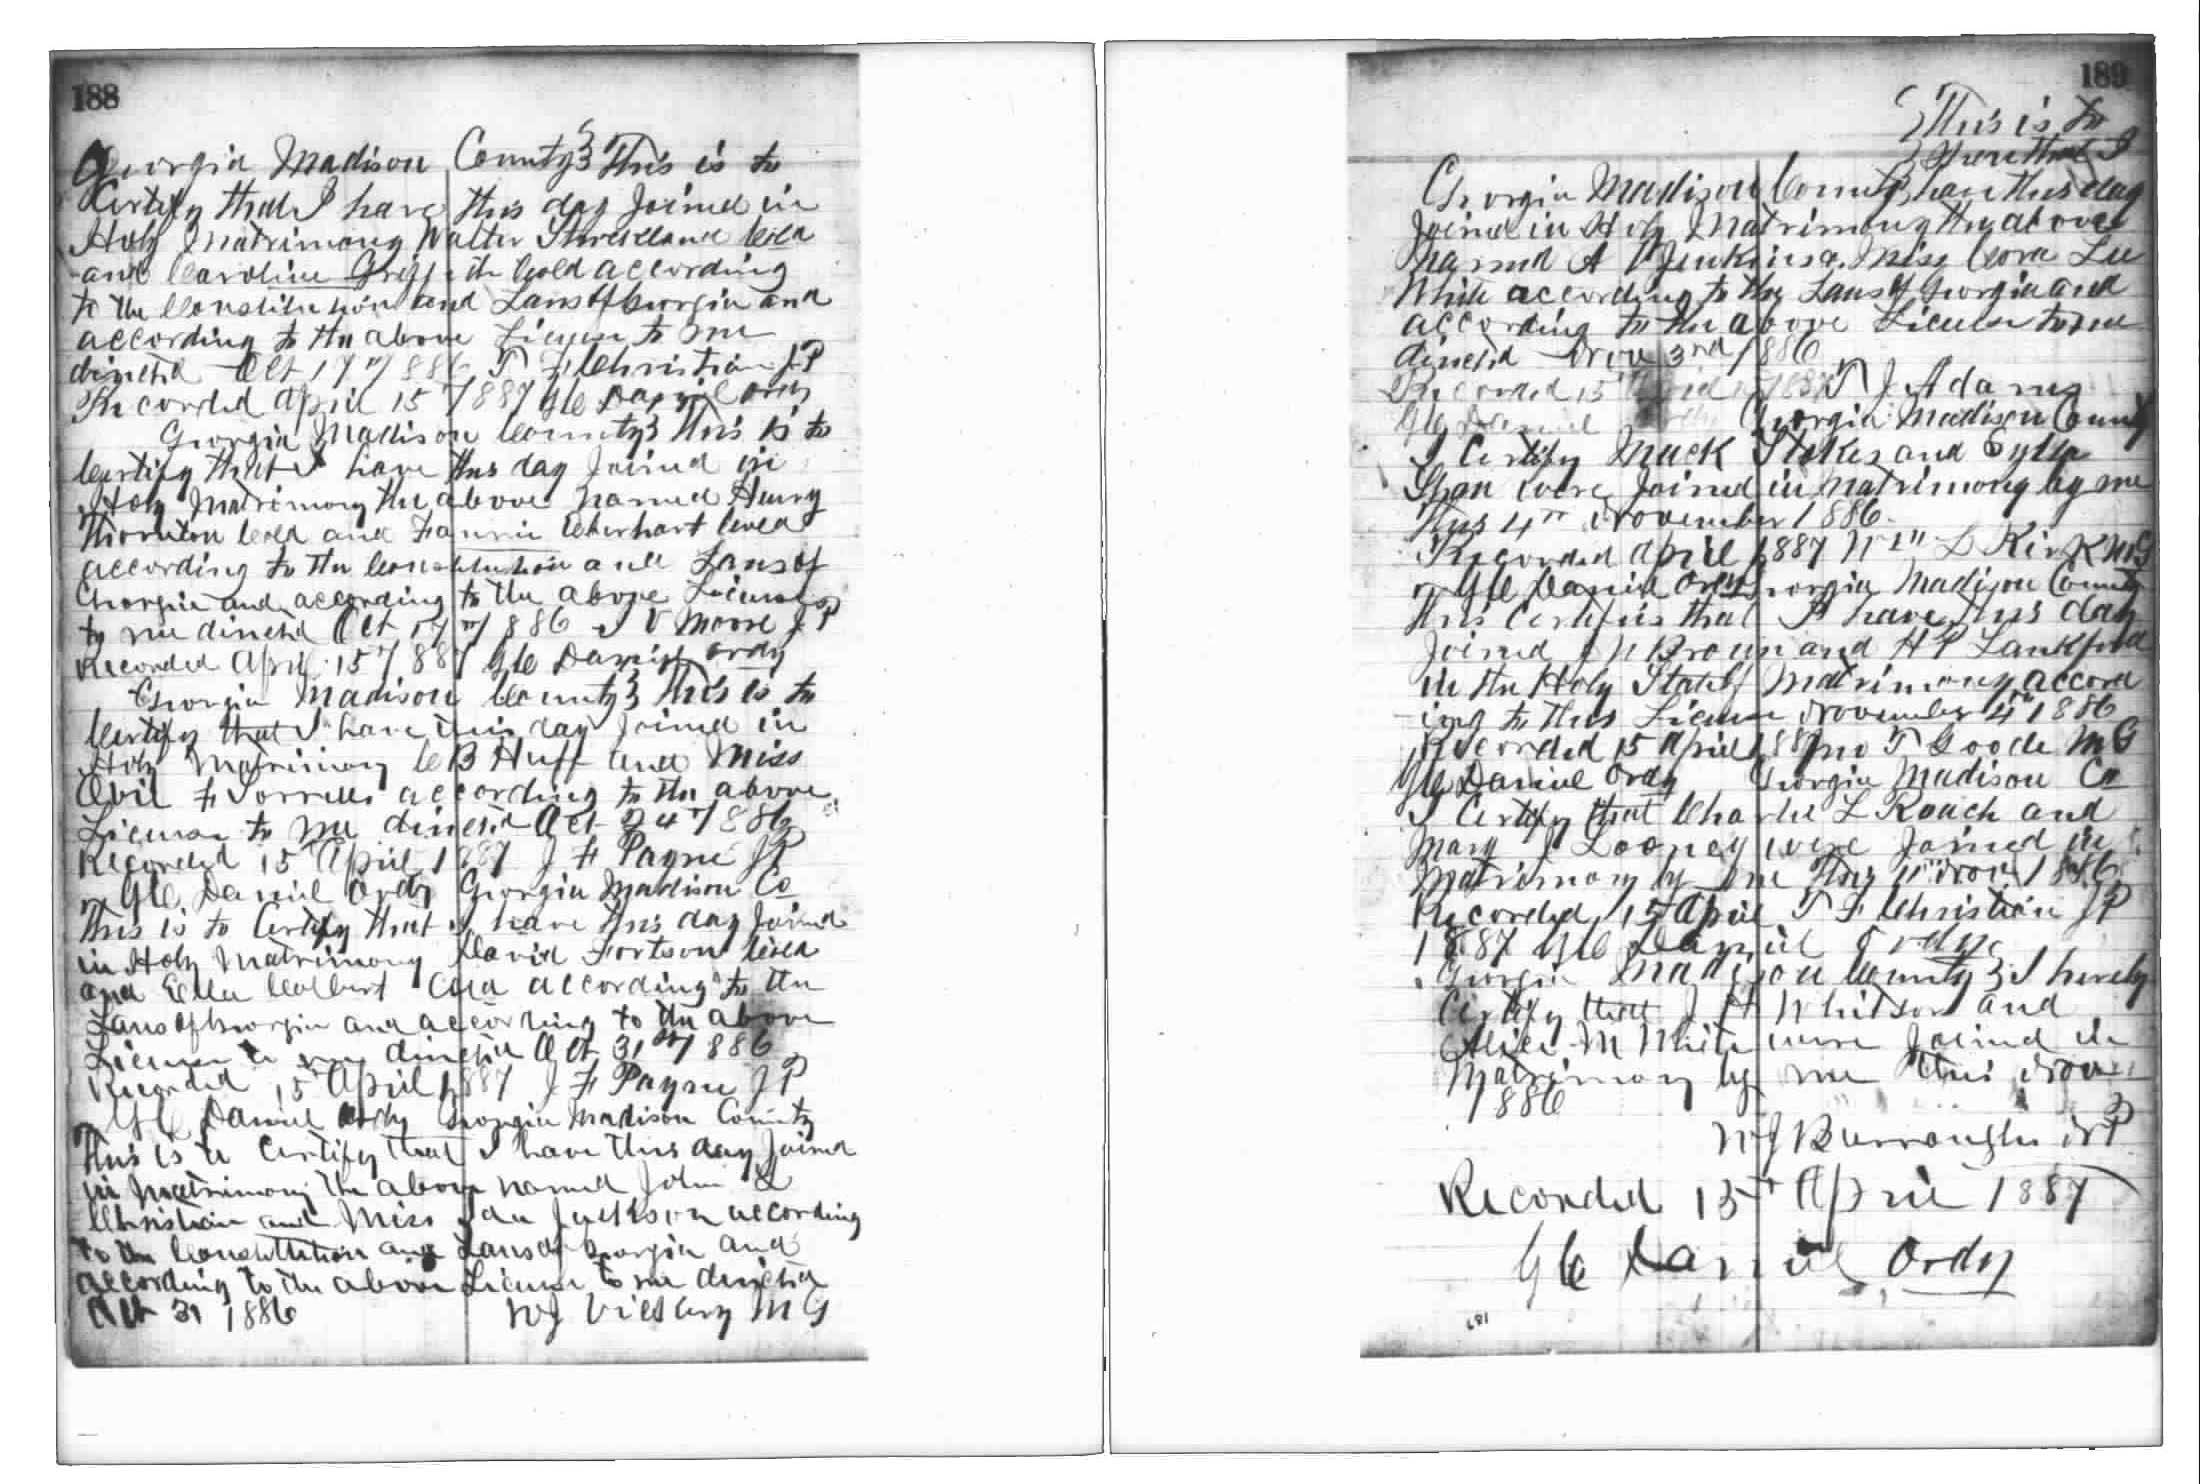 188
Georgia Madison County } This is to
Certify that I have this day Joined in
Holy Matrimony Walter Strickland Cold
and Caroline Griffith Cold according
to the Constitution and Laws of Georgia and
according to the above License to me
directed Oct 17" 1886 T F Christian J P
Recorded April 15" 1887 G C Daniel Ordy
Georgia Madison County } This is to
Certify that I have this day Joined in
Holy Matrimony the above named Henry
Thornton Cold and Fannie Eberhart Cold
according to the Constitution and Laws of
Georgia and according to the above License
to me directed Oct 17" 1886 J V Moore J P
Recorded April 15" 1887 G C Daniel Ordy
Georgia Madison County } This is to
Certify that I have this day Joined in
Holy Matrimony C B Huff and Miss
F Sorrells according to the above
License to me directed Oct 24" 1886
Recorded 15 April 1887 J F Payne J P
G C Daniel Ordy Georgia Madison Co
This is to Certify that I have this day Joined
in Holy Matrimony David Fortson Cold
and Ella Colbert Cold according to the
Laws of Georgia and according to the above
License to me directed Oct 31st 1886
Recorded 15" April 1887 J F Payne J P
G C Daniel Ordy Georgia Madison County
This is to Certify that I have this day Joined
in Matrimony the above named John
Christian and Miss Ida Jackson according
to the Constitution and Laws of Georgia and
according to the above License to me directed
Oct 31 1886 W J M G
189
This is to
that I
Georgia Madison County } have this day
Joined in Holy Matrimony the above
named A Jenkins & Miss Cora Lee
White according to the Laws of Georgia and
according to the above License to me
directed Nov 3rd 1886
Recorded 15 April 1887 T J Adams
G C Daniel Ordy Georgia Madison County
I Certify Mack Stokes and
were Joined in matrimony by me
This 4" November 1886
Recorded April 1887 Wm D Kirk M G
G C Daniel Ordy Georgia Madison County
This Certifies that I have this day
Joined J N Brown and H P Lankford
in the Holy State of Matrimony accord
ing to this License November 4" 1886
Recorded 15 April 1887 Jno T Goode M G
G C Daniel Ordy Georgia Madison Co
I Certify that Charlie L Roach and
Mary J Looney were Joined in
Matrimony by me This 11" Nov 1886
Recorded 15 April T F Christian J P
1887 G C Daniel Ordy
Georgia Madison County } I hereby
Certify that J H Whitson and
Alice M White were Joined in
Matrimony by me this Nov
1886
W J Burroughs N P
Recorded 15" April 1887
G C Daniel Ordy
189